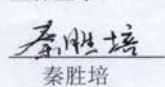 秦胜培
秦胜培